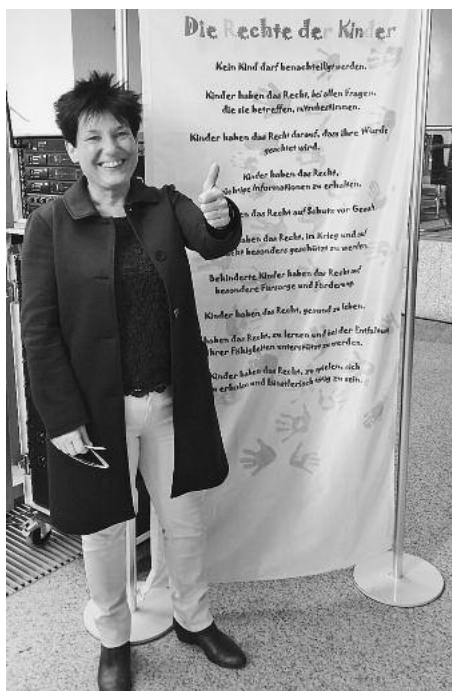 Die Rechte der Kinder
Kein Kind darf benachteiligt werden.
Kinder haben das Recht, bei allen Fragen,
die sie betreffen, mitzubestimmen.
Kinder haben das Recht darauf, dass ihre Würde
geachtet wird.
Kinder haben das Recht,
Informationen zu erhalten.
das Recht auf Schutz vor
haben das Recht, im Krieg und auf
besonders geschützt zu werden.
Behinderte Kinder haben das Recht auf
besondere Fürsorge und Förderung.
Kinder haben das Recht, gesund zu leben.
haben das Recht, zu lernen und bei der Entfaltung
ihrer Fähigkeiten unterstützt zu werden.
Kinder haben das Recht, zu spielen, sich
erholen und künstlerisch tätig zu sein.